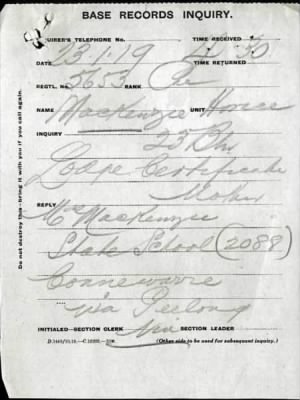 BASE RECORDS INQUIRY.
UIRER'S TELEPHONE No. TIME RECEIVED 4.30
DATE 13/1/19 TIME RETURNED
REGTL. No. 5653 RANK
NAME MacKenzie UNIT Horace
INQUIRY 23 Bn
Lodge Certificate
Mother
REPLY Mrs MacKenzie
State School (2088)
Connewarre
via Geelong
INITIALED—SECTION CLERK SECTION LEADER
(Other side to be used for subsequent inquiry.)
Do not destroy this—bring it with you if you call again.